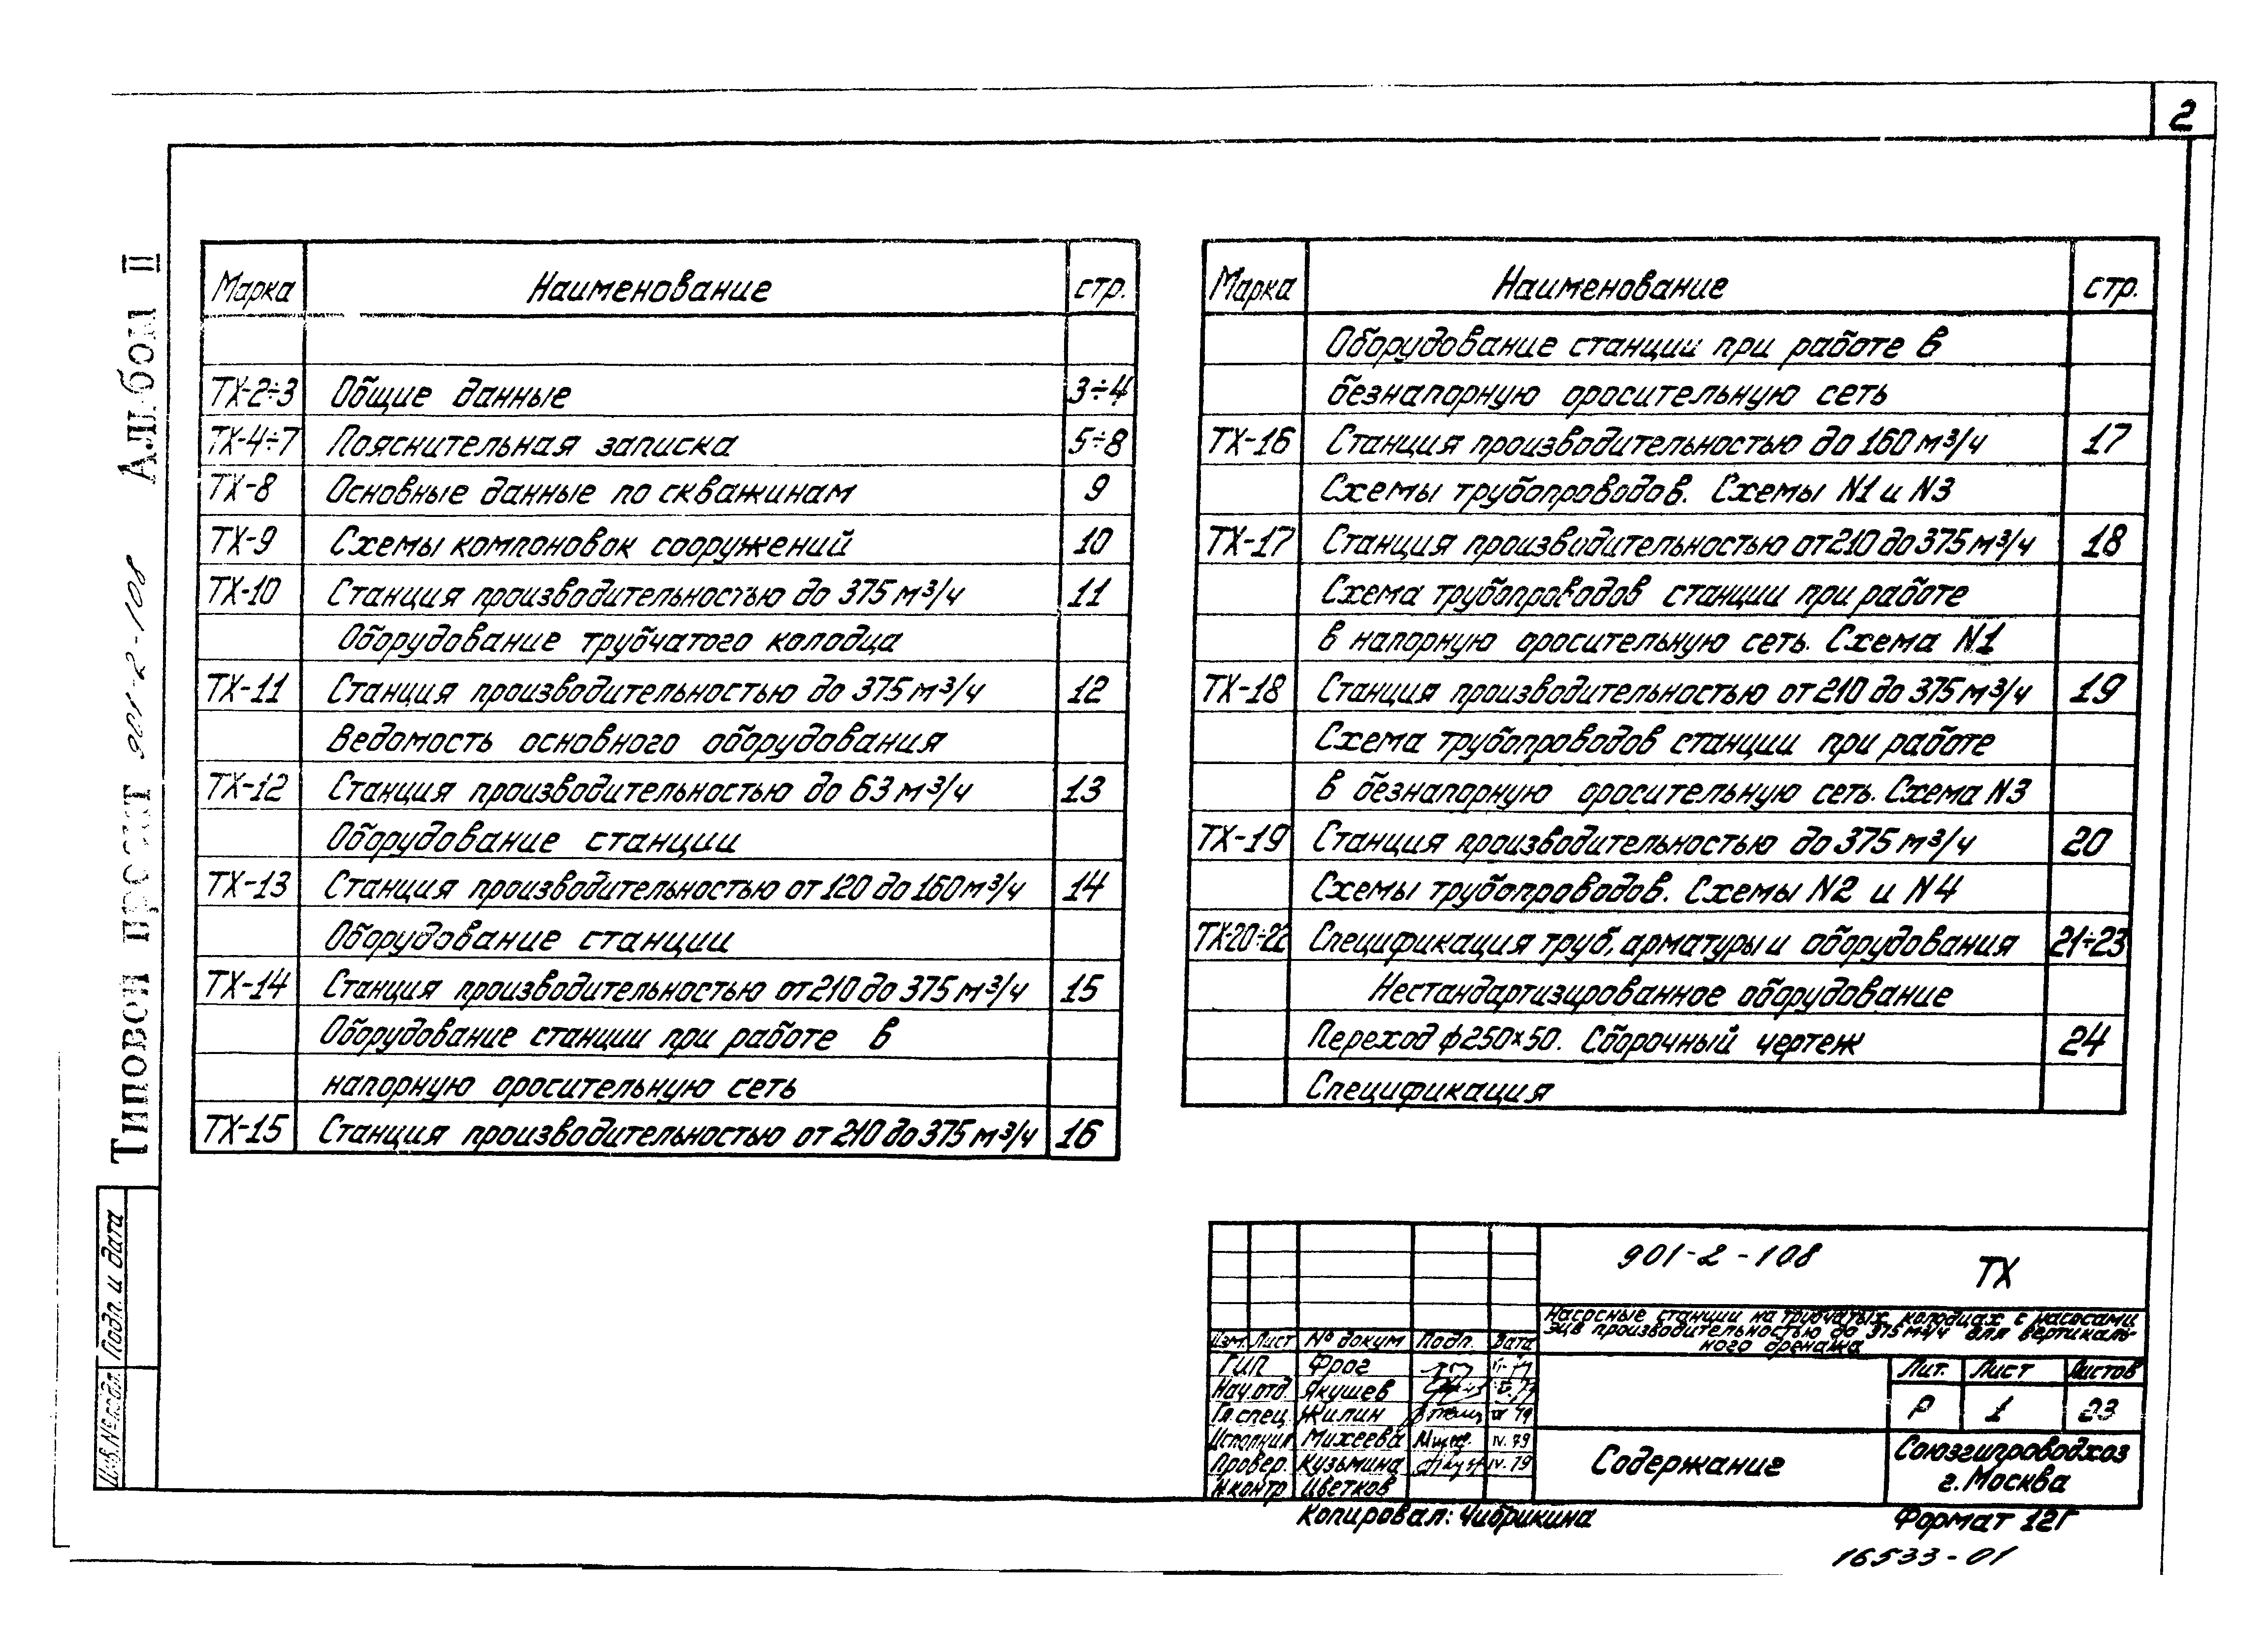 2
Типовой проект 901-2-108 Альбом II
Марка Наименование стр.
ТХ-2÷3 Общие данные 3÷4
ТХ-4÷7 Пояснительная записка 5÷8
ТХ-8 Основные данные по скважинам 9
ТХ-9 Схемы компоновок сооружений 10
ТХ-10 Станция производительностью до 375 м³/ч 11
Оборудование трубчатого колодца
ТХ-11 Станция производительностью до 375 м³/ч 12
Ведомость основного оборудования
ТХ-12 Станция производительностью до 63 м³/ч 13
Оборудование станции
ТХ-13 Станция производительностью от 120 до 160 м³/ч 14
Оборудование станции
ТХ-14 Станция производительностью от 210 до 375 м³/ч 15
Оборудование станции при работе в
напорную оросительную сеть
ТХ-15 Станция производительностью от 210 до 375 м³/ч 16
Марка Наименование стр.
Оборудование станции при работе в
безнапорную оросительную сеть
ТХ-16 Станция производительностью до 160 м³/ч 17
Схемы трубопроводов. Схемы N1 и N3
ТХ-17 Станция производительностью от 210 до 375 м³/ч 18
Схема трубопроводов станции при работе
в напорную оросительную сеть. Схема N1
ТХ-18 Станция производительностью от 210 до 375 м³/ч 19
Схема трубопроводов станции при работе
в безнапорную оросительную сеть. Схема N3
ТХ-19 Станция производительностью до 375 м³/ч 20
Схемы трубопроводов. Схемы N2 и N4
ТХ-20÷22 Спецификация труб, арматуры и оборудования 21÷23
Нестандартизированное оборудование
Переход ф250×50. Сборочный чертеж 24
Спецификация
Инв.№ подл. Подп. и дата
901-2-108 ТХ
Насосные станции на трубчатых колодцах с насосами
ЭЦВ производительностью до 375 м³/ч для вертикаль-
ного дренажа
Изм. Лист № докум Подп. Дата
ГИП Фрог
Нач.отд. Якушев
Гл.спец. Жилин
Исполнил Михеева IV.79
Провер. Кузьмина IV.79
Н.контр Цветков
Лит. Лист Листов
Р 1 23
Содержание
Союзгипроводхоз
г. Москва
Копировал: Чибрикина Формат 12Г
16533-01